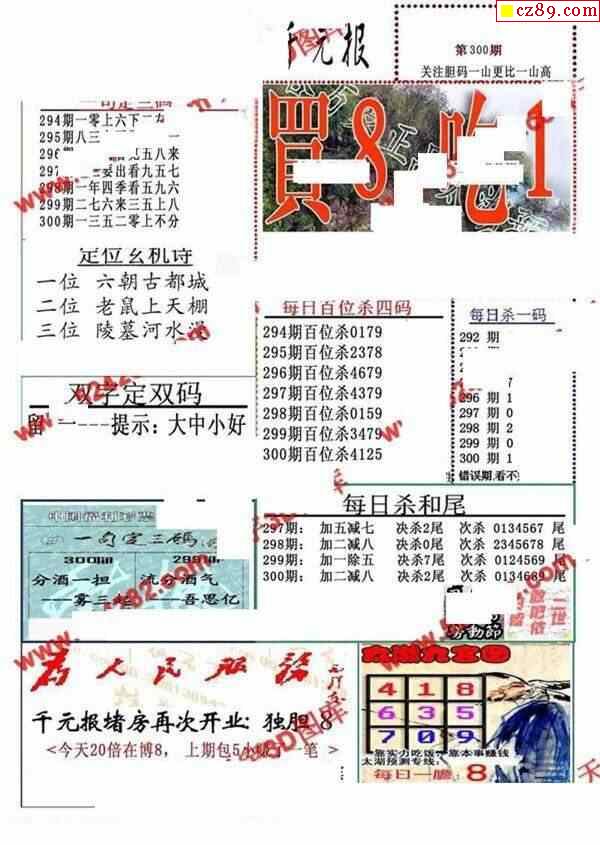 cz89.com
千元报
第300期
关注胆码一山更比一山高
買8吃1
294期一零上六下二
295期八三
五八来
出看九五七
298期一年四季看五九六
299期二七六来三五上八
300期一三五二零上不分
定位玄机诗
一位 六朝古都城
二位 老鼠上天棚
三位 陵墓河水
每日百位杀四码
294期百位杀0179
295期百位杀2378
296期百位杀4679
297期百位杀4379
298期百位杀0159
299期百位杀3479
300期百位杀4125
每日杀一码
292 期
7
296 期 1
297 期 0
298 期 2
299 期 0
300 期 1
错误期,看不
双字定双码
留 一---提示:大中小好
一句定三码
300期 299期
分酒一担 流分酒气
——雾三 ——吾思亿
每日杀和尾
297期: 加五减七 决杀2尾 次杀 0134567 尾
298期: 加二减八 决杀0尾 次杀 2345678 尾
299期: 加一除五 决杀7尾 次杀 0124569 尾
300期: 加二减八 决杀2尾 次杀 0134689 尾
为人民服务
千元报堵房再次开业:独胆 8
<今天20倍在博8, 上期包5小 一笔 >
太湖九宫图
4 1 8
6 3 5
7 0 9
靠实力吃饭,靠本事赚钱
太湖预测专线:
每日一胆: 8